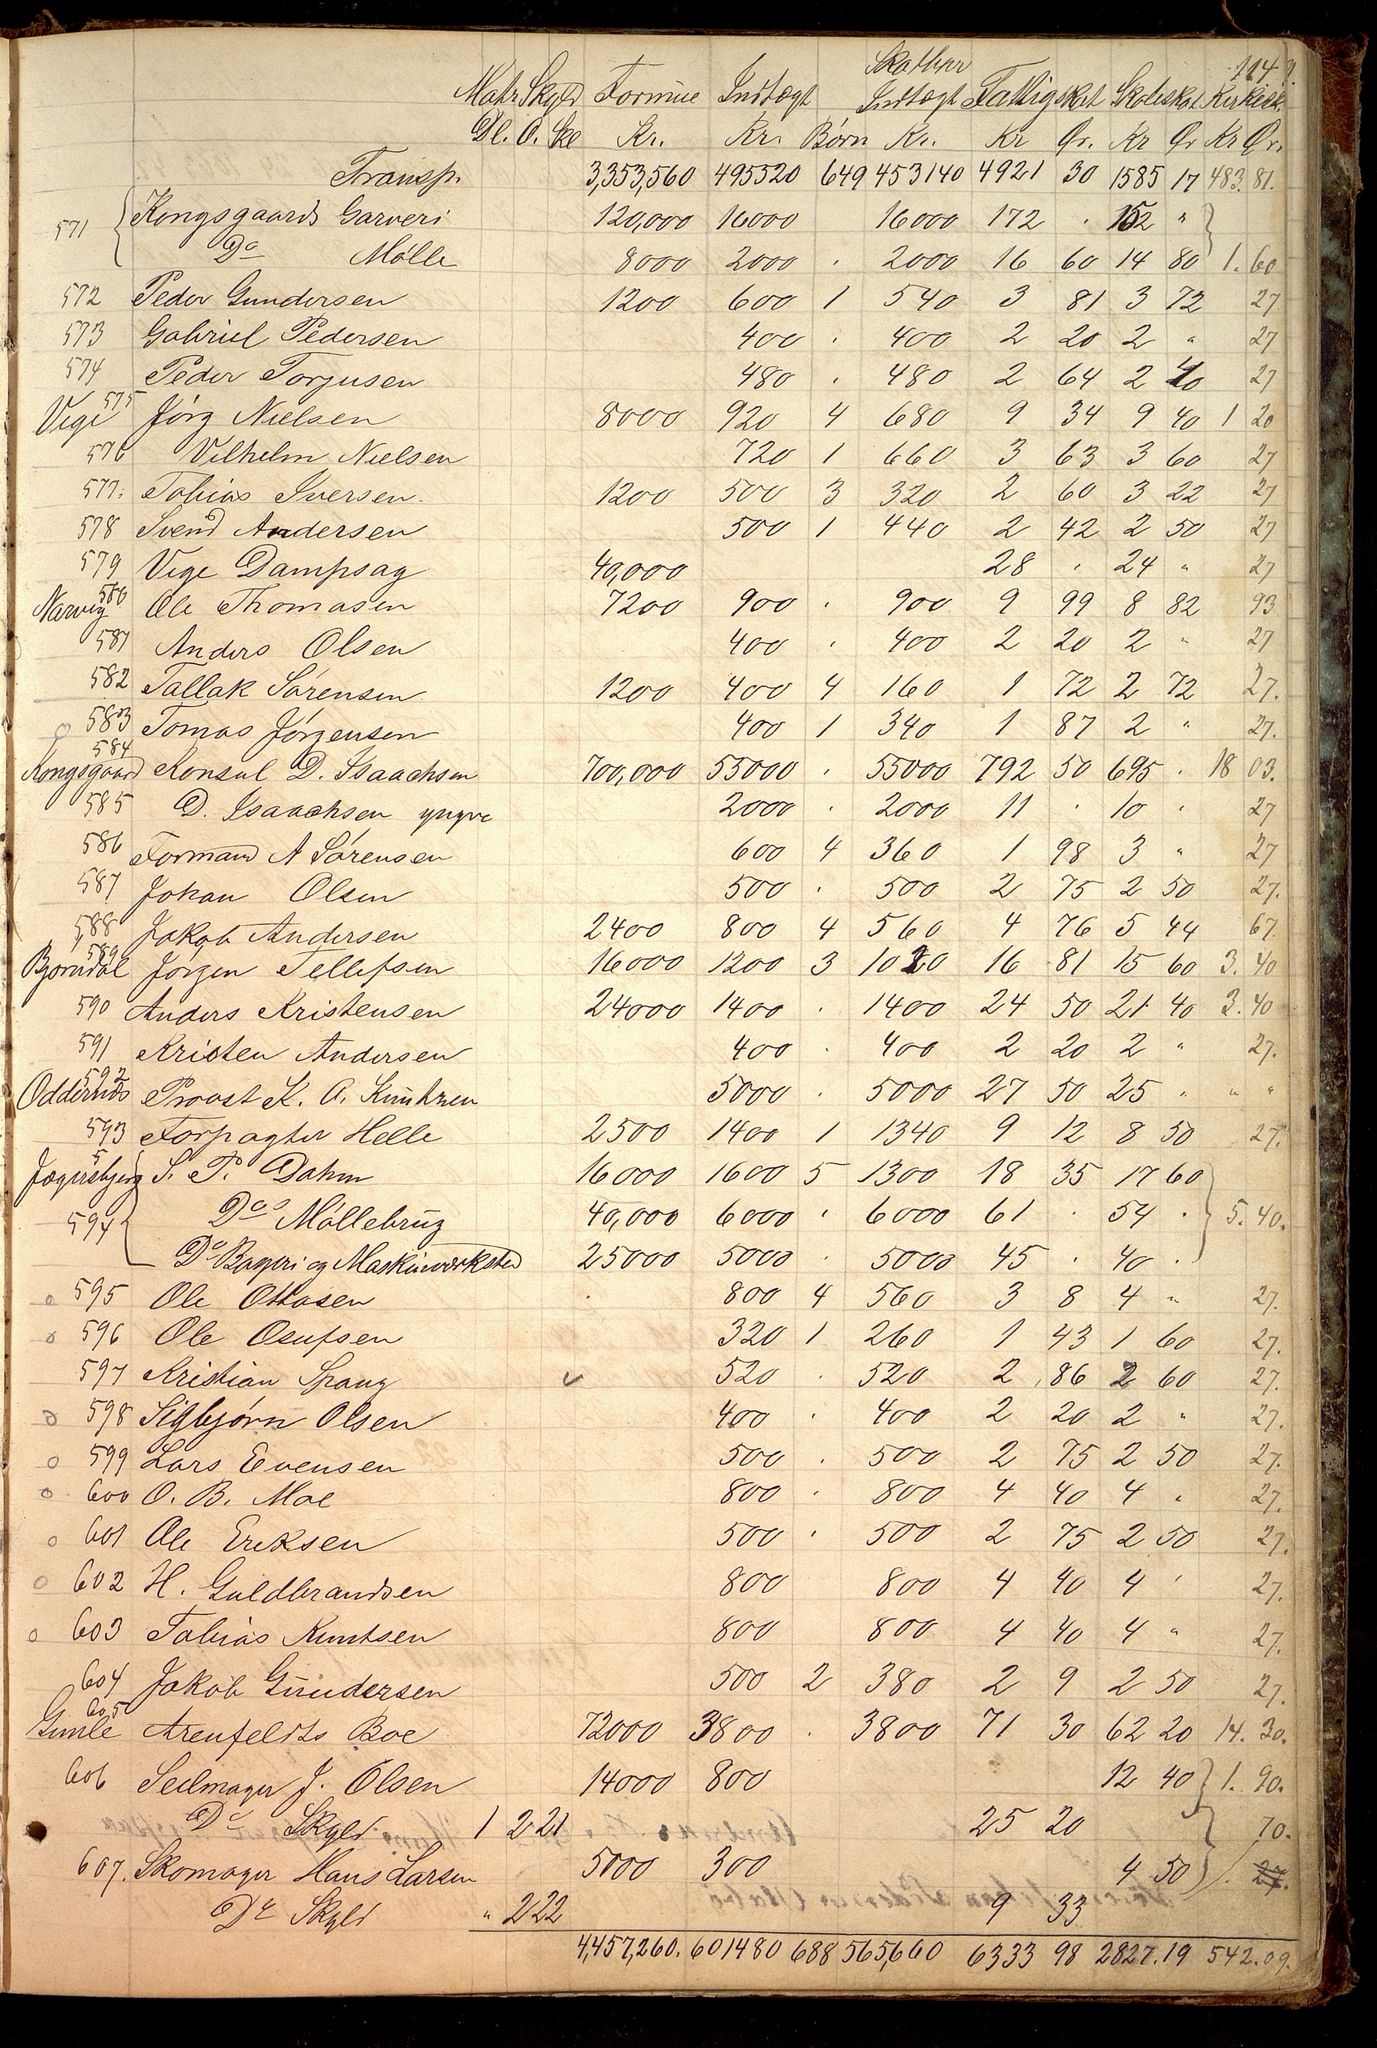 114
Matr. Skyld Formue Indtægt Skatbar Indtægt Fattigskat Skoleskat Kirkesk.
Dl. O. Sk Kr. Kr. Børn Kr. Kr Ør. Kr Ør Kr Ør.
Transp. 3,353,560 495520 649 453140 4921 30 1585 17 483. 81.
571 Kongsgaards Garveri 120,000 16000 16000 172 . 152 "
Do Mølle 8000 2000 . 2000 16 60 14 80 1. 60
572 Peder Gundersen 1200 600 1 540 3 81 3 72 27
573 Gabriel Pedersen 400 . 400 2 20 2 " 27
574 Peder Torjusen 480 . 480 2 64 2 40 27
Vige 575 Jörg Nielsen 8000 920 4 680 9 34 9 40 1 20
576 Vilhelm Nielsen 720 1 660 3 63 3 60 27
577. Tobias Iversen 1200 500 3 320 2 60 3 22 27
578 Svend Andersen 500 1 440 2 42 2 50 27
579 Vige Dampsag 40,000 28 . 24 " 27
Narvig 580 Ole Thomasen 7200 900 . 900 9 99 8 82 93
581 Anders Olsen 400 . 400 2 20 2 " 27
582 Tallak Sørensen 1200 400 4 160 1 72 2 72 27.
583 Tomas Jörgensen 400 1 340 1 87 2 " 27.
584 Kongsgaard Konsul D. Isaachsen 700,000 55000 . 55000 792 50 695 . 18 03.
585 D. Isaachsen yngre 2000 . 2000 11 . 10 " 27
586 Formand A Sørensen 600 4 360 1 98 3 " 27
587 Johan Olsen 500 . 500 2 75 2 50 27.
588 Jakob Andersen 2400 800 4 560 4 76 5 44 67.
589 Bjørndal Jørgen Tellefsen 16000 1200 3 1020 16 81 15 60 3. 40
590 Anders Kristensen 24000 1400 . 1400 24 50 21 40 3. 40
591 Kristen Andersen 400 . 400 2 20 2 " 27.
592 Oddernæs Provst K. A. Knudzen 5000 . 5000 27 50 25 " " "
593 Forpagter Helle 2500 1400 1 1340 9 12 8 50 27.
Jægersbjerg S. P. Dahm 16000 1600 5 1300 18 35 17 60
594 Do Møllebrug 40,000 6000 . 6000 61 . 54 . 5. 40.
Do Bageri og Maskinværksted 25000 5000 . 5000 45 . 40 .
o 595 Ole Ottosen 800 4 560 3 8 4 " 27.
o 596 Ole Osufsen 320 1 260 1 43 1 60 27.
597 Kristian Spang 520 . 520 2 86 2 60 27.
o 598 Sigbjørn Olsen 400 . 400 2 20 2 " 27.
o 599 Lars Evensen 500 . 500 2 75 2 50 27.
o 600 O. B. Moe 800 . 800 4 40 4 " 27.
o 601 Ole Eriksen 500 . 500 2 75 2 50 27.
o 602 H. Guldbrandsen 800 800 4 40 4 " 27.
o 603 Tobias Knutsen 800 800 4 40 4 " 27.
604 Jakob Gundersen 500 2 380 2 9 2 50 27.
605 Gimle Arenfeldts Boe 72000 3800 . 3800 71 30 62 20 14. 30.
606 Seilmager J. Olsen 14000 800 12 40 1. 90.
Do Skyld 1 2 21 25 20 70.
607. Skomager Hans Larsen 5000 300 4 50 27.
Do Skyld " 2 22 9 33
4,457,260. 601480 688 565,660 6333 98 2827. 19 542. 09.